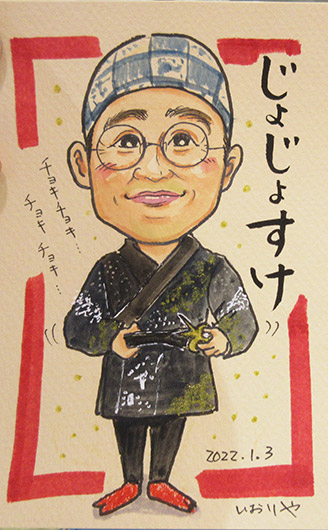 じょじょすけ
チョキチョキ…
チョキ チョキ…
2022.1.3
いおりや